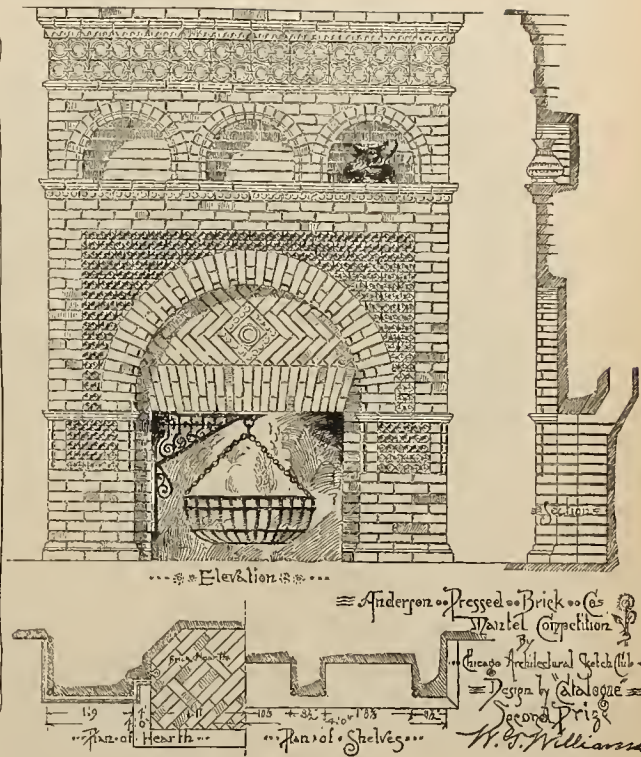 Elevation
Section
Anderson Pressed Brick Co's
Mantel Competition
By
Chicago Architectural Sketch Club
Design by "Catalogue"
Second Prize
W. G. Williamson
Brick Hearth
1'9
4'0"
4'0"
Plan of Hearth
Plan of Shelves